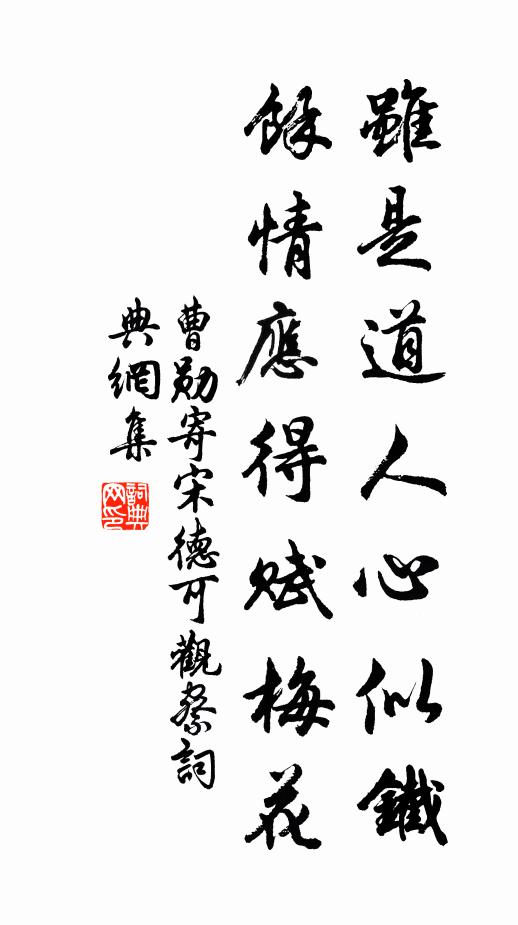 雖是道人心似鐵
餘情應得賦梅花
曹勛寄宋德可觀察詞
典網集
詞典
网印